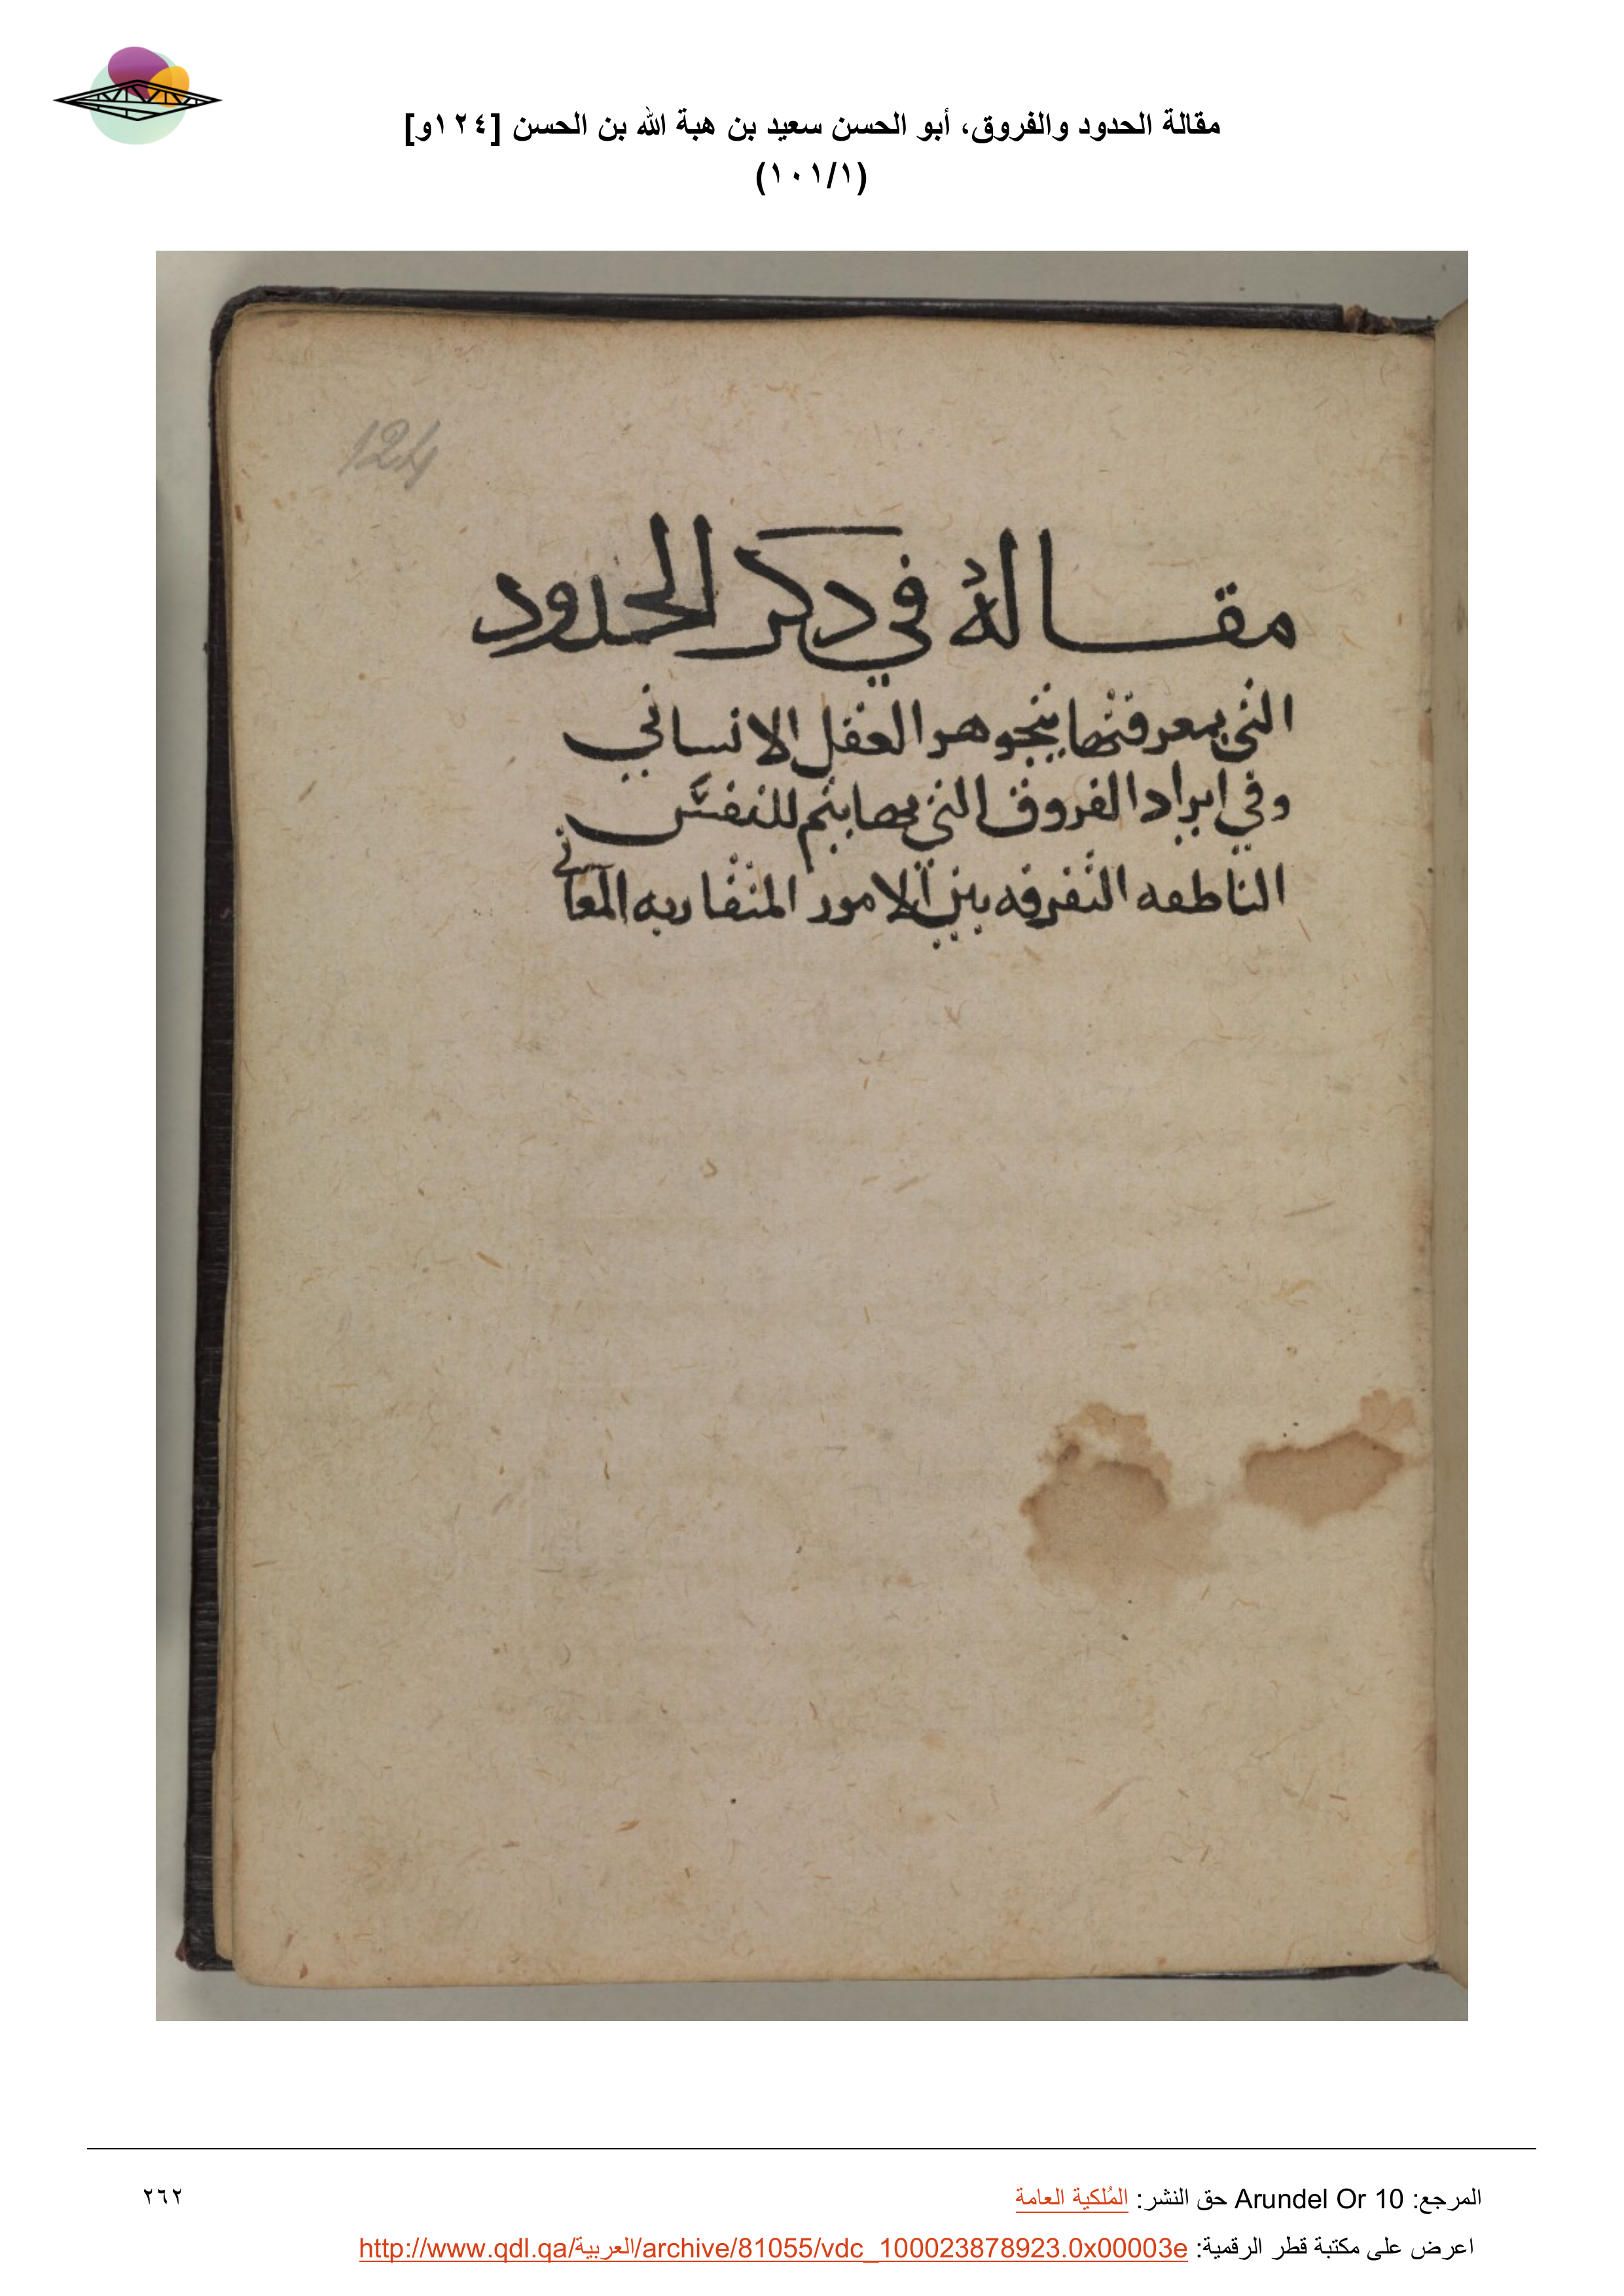 مقالة الحدود والفروق، أبو الحسن سعيد بن هبة الله بن الحسن [١٢٤و]
(١٠١/١)
124
مقالة في دكر الحدود
التي بمعرفتها يتجوهر العقل الانساني
وفي ايراد الفروق التي بها يتم للنفس
الناطقه التفرقه بين الامور المتقاربه المعاني
المرجع: Arundel Or 10 حق النشر: المُلكية العامة
٢٦٢
اعرض على مكتبة قطر الرقمية: http://www.qdl.qa/العربية/archive/81055/vdc_100023878923.0x00003e